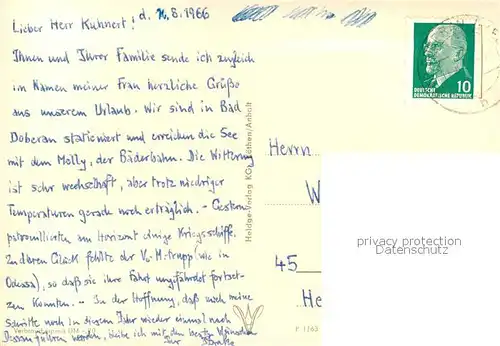 Lieber Herr Kuhnert! d. 8.1966
Ihnen und Ihrer Familie sende ich zugleich
im Namen meiner Frau herzliche Grüße
aus unserem Urlaub. Wir sind in Bad
Doberan stationiert und erreichen die See
mit dem Molly, der Bäderbahn. Die Witterung
ist sehr wechselhaft, aber trotz niedriger
Temperaturen gerade noch erträglich. – Gestern
patrouillierten am Horizont einige Kriegsschiffe.
Zu ihrem Glück fehlte der V.-M.-trupp (wie in
Odessa), so daß sie ihre Fahrt ungefährdet fortset-
zen konnten. – In der Hoffnung, daß mich meine
Schritte noch in diesem Jahr wieder einmal nach
Dessau führen werden, bleibe ich mit den besten Wünschen
Ihr
Heldge-Verlag KG, Köthen/Anhalt
10
DEUTSCHE
DEMOKRATISCHE REPUBLIK
Herrn
W
45
He
privacy protection
Datenschutz